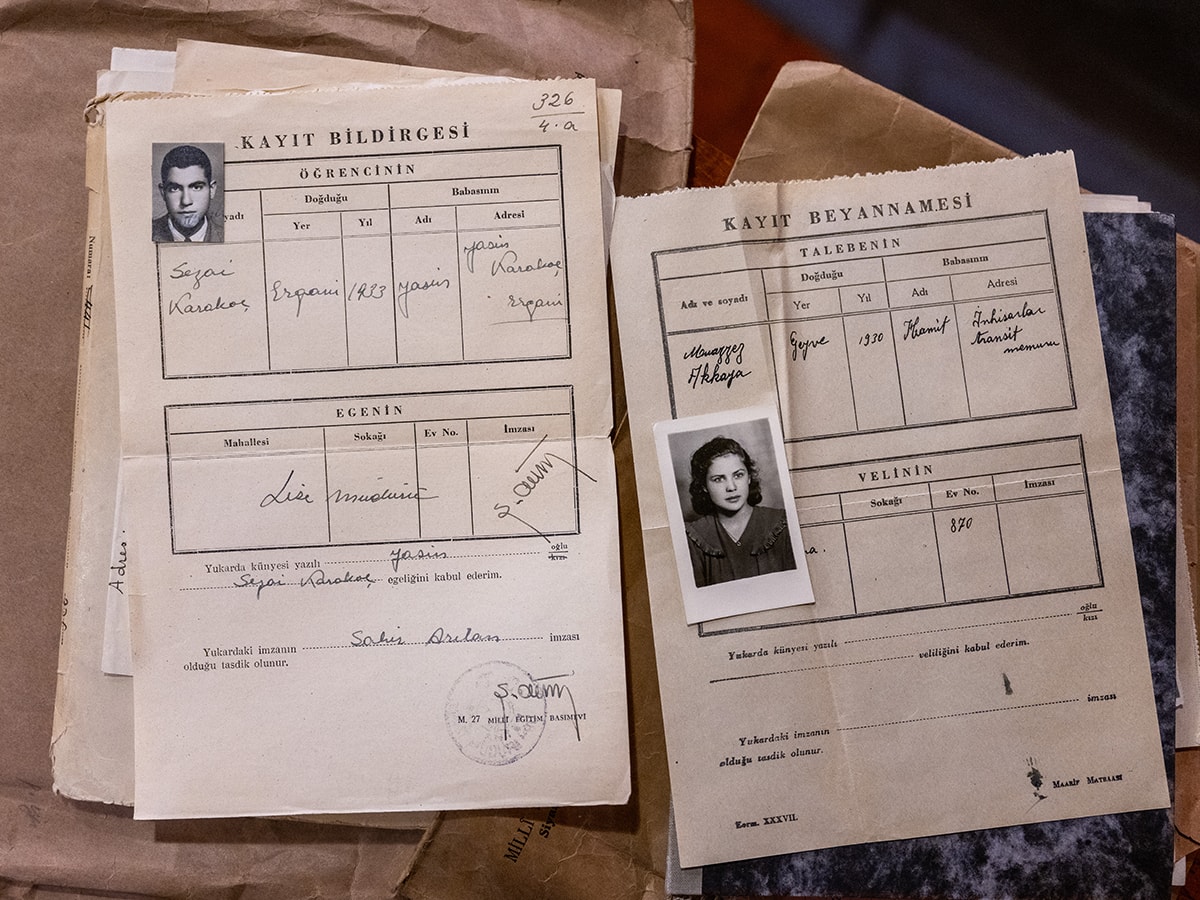 326
4-a
KAYIT BİLDİRGESİ
ÖĞRENCİNİN
yadı
Doğduğu
Babasının
Yer
Yıl
Adı
Adresi
Sezai
Karakoç
Ergani
1933
Yasin
Yasin
Karakoç
Ergani
EGENİN
Mahallesi
Sokağı
Ev No.
İmzası
Lise müdürü
Yukarda künyesi yazılı Yasin oğlu
kızı
Sezai Karakoç egeliğini kabul ederim.
Yukardaki imzanın imzası
olduğu tasdik olunur.
M. 27 MİLLÎ EĞİTİM BASIMEVİ
Adres.
MİLLÎ
KAYIT BEYANNAMESİ
TALEBENİN
Adı ve soyadı
Doğduğu
Babasının
Yer
Yıl
Adı
Adresi
Muazzez
Akkaya
Geyve
1930
Hamit
İnhisarlar
transit
memuru
VELİNİN
Sokağı
Ev No.
İmzası
870
Yukarda künyesi yazılı oğlu
kızı
veliliğini kabul ederim.
Yukardaki imzanın imzası
olduğu tasdik olunur.
MAARİF MATBAASI
Korm. XXXVII.